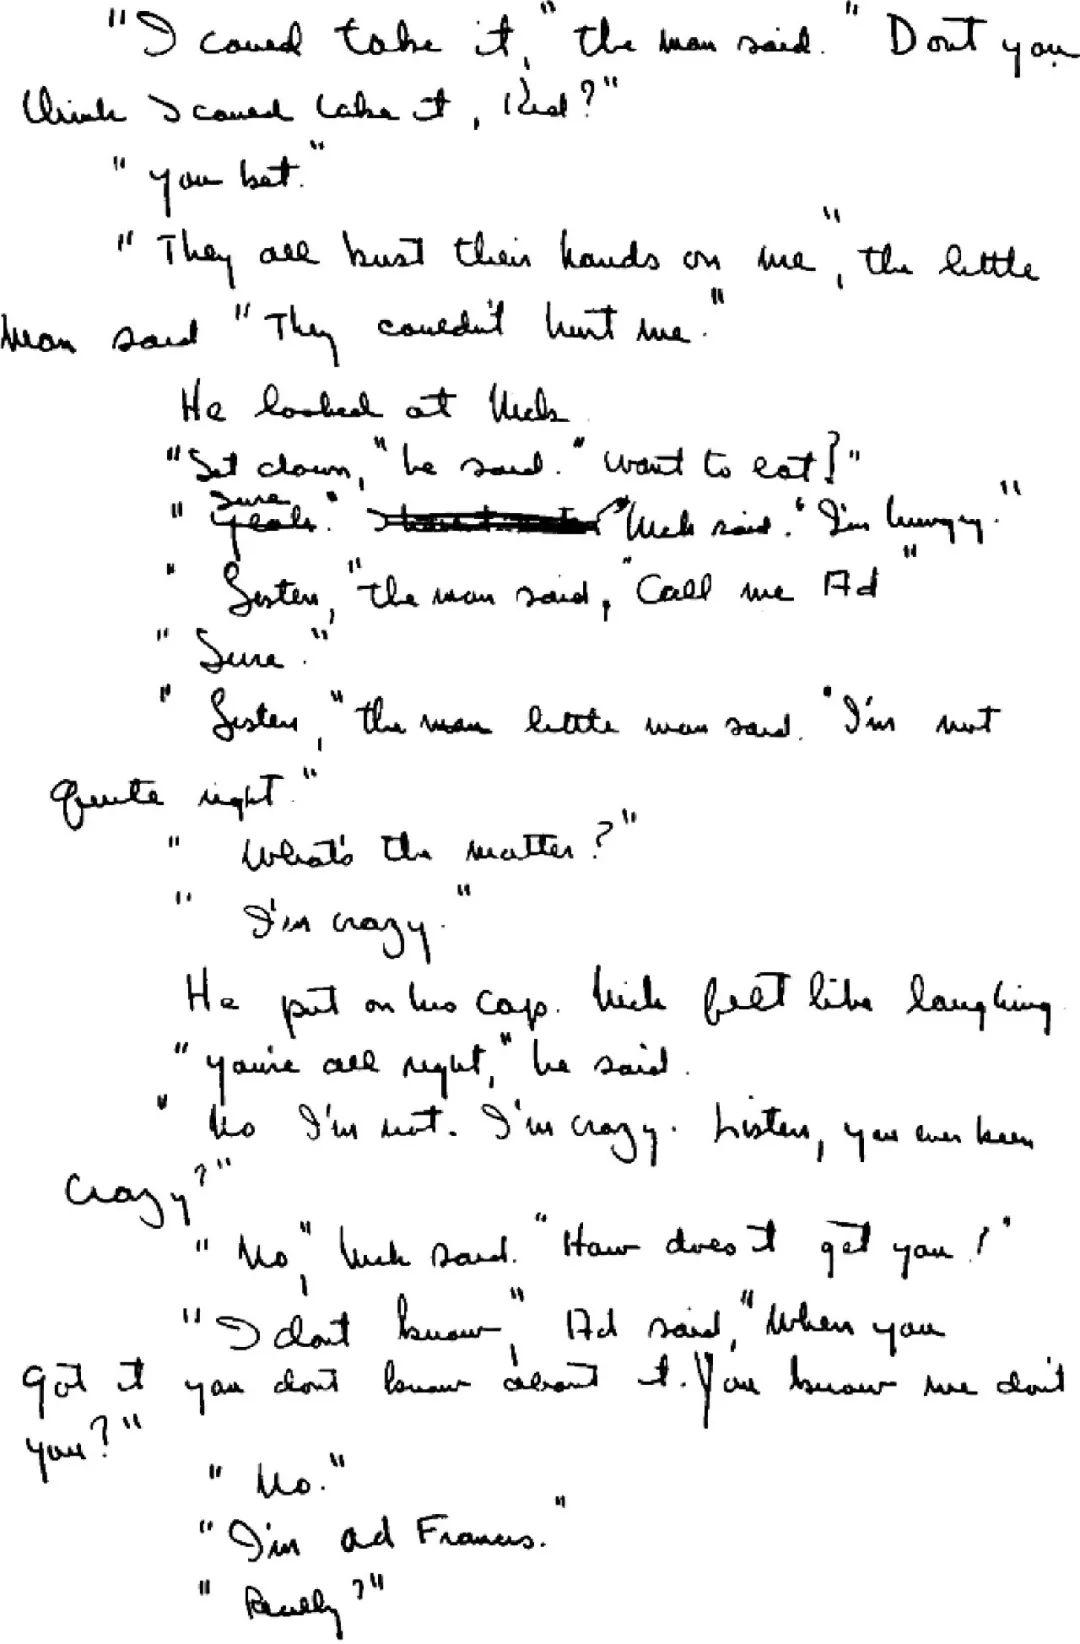 "I could take it," the man said. "Dont you
think I could take it, Kid?"
"you bet."
"They all bust their hands on me", the little
man said "They couldn't hurt me."
He looked at Nick
"Set down," he said. "want to eat?"
Sure
"Yeah." "Nick said. "I'm hungry."
"Listen," the man said, "Call me Ad"
"Sure."
"Listen," the man little man said. "I'm not
quite right."
"What's the matter?"
"I'm crazy."
He put on his cap. Nick felt like laughing
"you're all right," he said.
"No I'm not. I'm crazy. Listen, you ever been
crazy?"
"No," Nick said. "How does it get you?"
"I dont know," Ad said, "When you
got it you dont know about it. You know me don't
you?"
"No."
"I'm ad Francis."
"Really?"